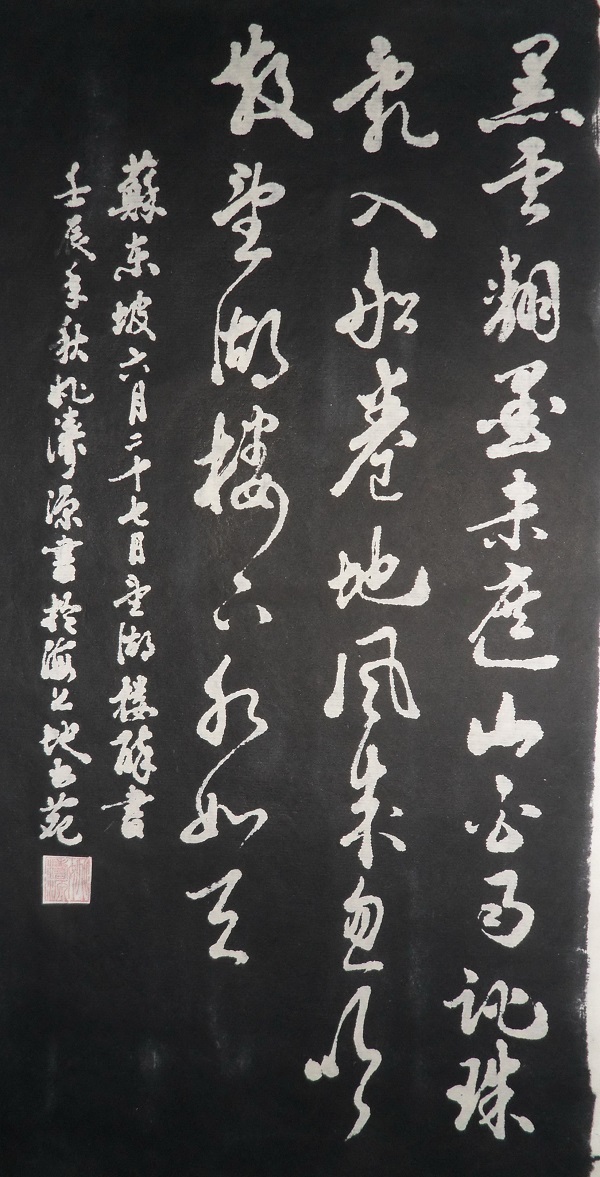 黑云翻墨未遮山白雨跳珠
亂入船卷地風來忽吹
散望湖樓下水如天
蘇東坡六月二十七日望湖樓醉書
壬辰年秋姚源書於海上苑